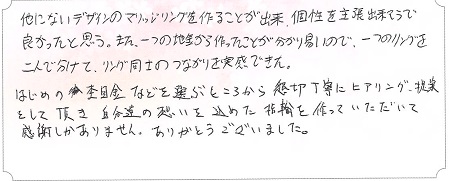 他にないデザインのマリッジリングを作ることが出来、個性を主張出来そうで
良かったと思う。また、一つの地金から作ったことが分かり易いので、一つのリングを
二人で分けて、リング同士のつながりを実感できた。
はじめの木目金などを選ぶところから 懇切丁寧にヒアリング、提案
をして頂き 自分達の想いを込めた指輪を作っていただいて
感謝しかありません。ありがとうございました。